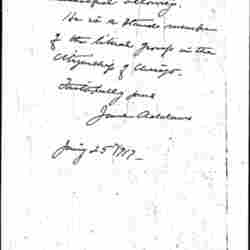 He is a staunch member
of the liberal group in the
citizenship of Chicago.
Faithfully yours
Jane Addams
Jan'y 25" 1917